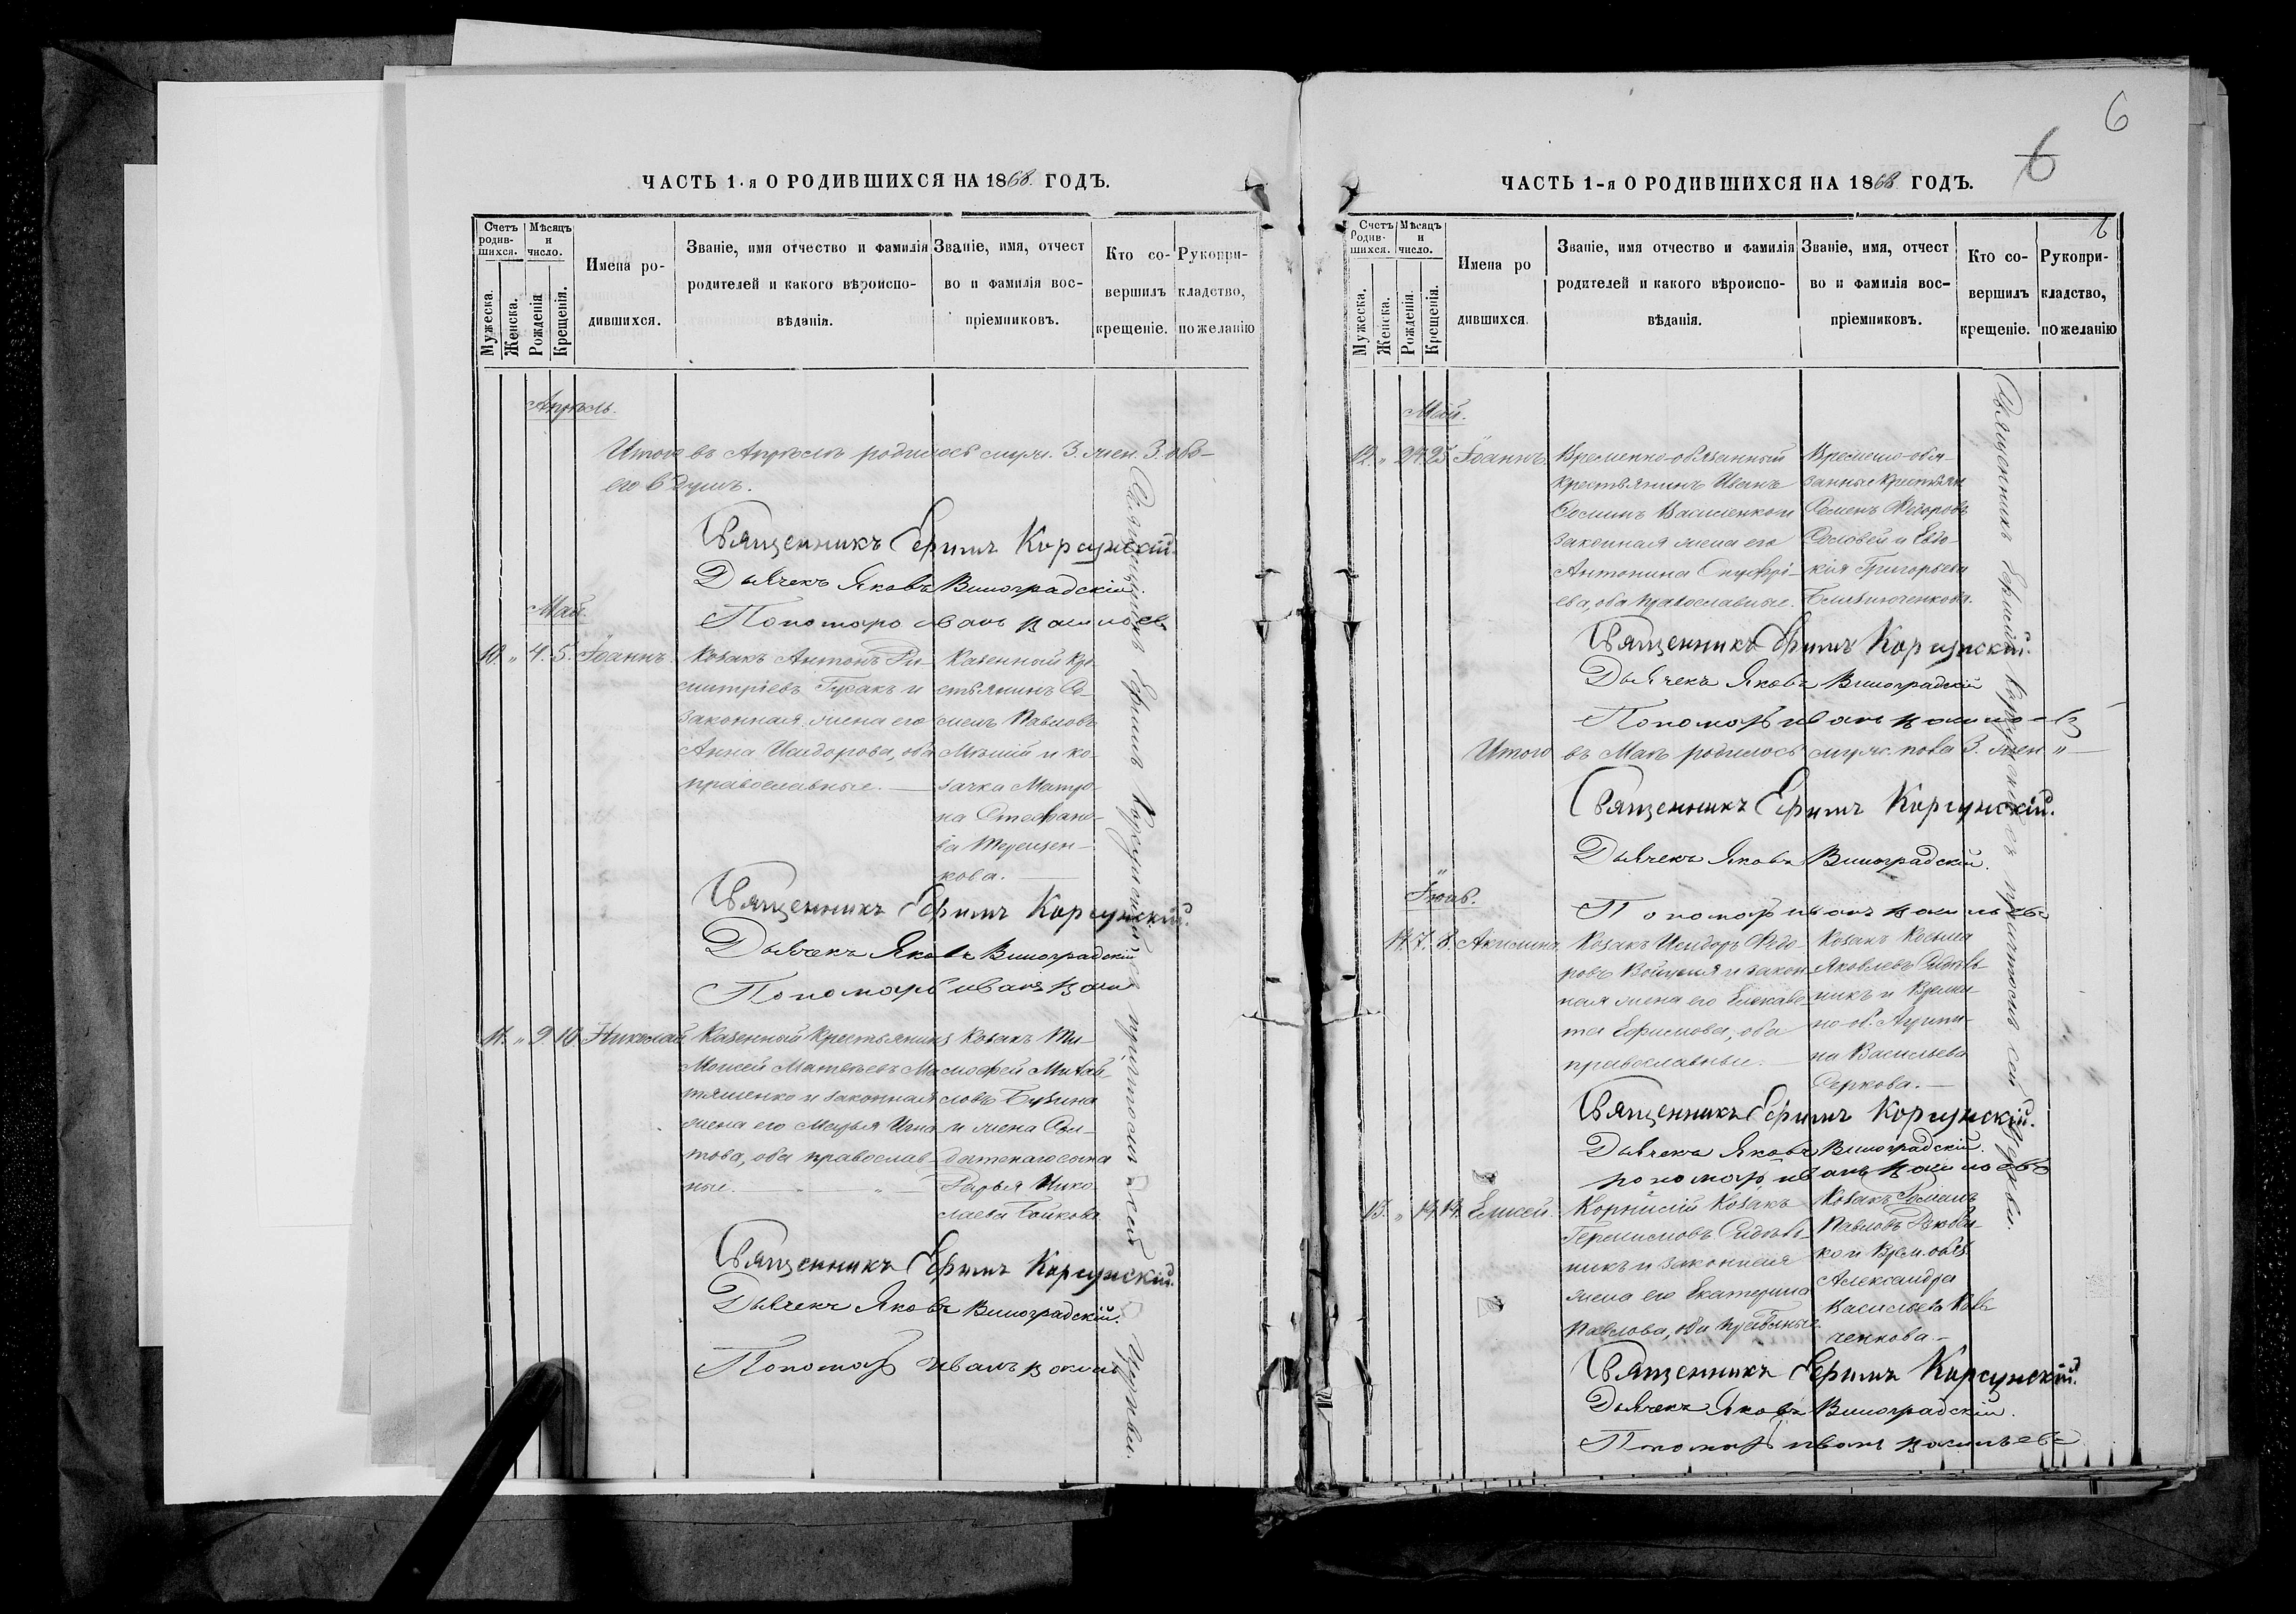 ЧАСТЬ 1-я О РОДИВШИХСЯ НА 1868 ГОДЪ.
Счетъ родив-шихся.
Мѣсяцъ и число.
Мужеска.
Женска.
Рожденія
Крещенія.
Имена ро-
дившихся.
Званіе, имя отчество и фамилія
родителей и какого вѣроиспо-
вѣданія.
Званіе, имя, отчест
во и фамилія вос-
пріемниковъ.
Кто со-
вершилъ
крещеніе.
Рукопри-
кладство,
по желанію
Апрѣль.
Итого въ Апрѣлѣ родилось муж. 3. жен. 3. обо-
его 6 душъ.
Священникъ Ефимъ Корсунскій.
Дьячекъ Яковъ Виноградскій
Пономарь Иванъ
Май.
10. „ 4. 5. Іоаннъ.
Козакъ Антонъ Ди-
митріевъ Гусакъ и
законная жена его
Анна Исидорова, оба
православные.
Казенный кре-
стьянинъ Се-
менъ Павловъ
и ко-
зачка Матро-
на Стефано-
ва Терещен-
кова.
Священникъ Ефимъ Корсунскій.
Дьячекъ Яковъ Виноградскій
Пономарь Иванъ
11. „ 9. 10. Николай
Казенный крестьянинъ
Моисей Матвѣевъ Ма-
тяшенко и законная
жена его Марья Игна-
това, оба православ-
ные.
Козакъ Ти-
мофей Михай-
ловъ Бузина
и жена Сол-
датскаго сына
Дарья Нико-
лаева Бойкова
Священникъ Ефимъ Корсунскій.
Дьячекъ Яковъ Виноградскій.
Пономарь Иванъ
Священникъ Ефимъ Корсунскій съ причтомъ сей Церкви.
6
6
ЧАСТЬ 1-я О РОДИВШИХСЯ НА 1868 ГОДЪ.
6
Счетъ Родив-шихся.
Мѣсяцъ и число.
Мужеска.
Женска.
Рожденія.
Крещенія.
Имена ро
дившихся.
Званіе, имя отчество и фамилія
родителей и какого вѣроиспо-
вѣданія.
Званіе, имя, отчест
во и фамилія вос-
пріемниковъ.
Кто со-
вершилъ
крещеніе.
Рукопри-
кладство,
по желанію
Май.
12. „ 24. 25. Іоаннъ.
Временно-обязанный
крестьянинъ Иванъ
Василенко и
законная жена его
Антонина Онуфрі-
ева, оба православные.
Временно-обя-
занный крестьян
Семенъ Федоровъ
Соловей и Евдо-
кія Григорьева
Священникъ Ефимъ Корсунскій.
Дьячекъ Яковъ Виноградскій
Пономарь Иванъ
Итого въ Маѣ родилось муж. пола 3. жен. „
Священникъ Ефимъ Корсунскій.
Дьячекъ Яковъ Виноградскій.
Іюнь.
Пономарь Иванъ
14. 7. 8. Акилина.
Козакъ Исидоръ Федо-
ровъ и закон-
ная жена его Елисаве-
та Ефимова, оба
православные.
Козакъ Косьма
Яковлевъ Сидель-
никъ и Времен-
но об. Агрипи-
на Васильева
Серкова.
Священникъ Ефимъ Корсунскій.
Дьячекъ Яковъ Виноградскій.
пономарь Иванъ
13. „ 14. 14. Елисей.
Корнилій Козакъ
Герасимовъ Сидель-
никъ и законная
жена его Екатерина
Павлова, оба
Козакъ
Павловъ
Врем. обяз
Александра
Васильева
ченкова.
Священникъ Ефимъ Корсунскій.
Дьячекъ Яковъ Виноградскій.
Пономарь Иванъ Васильевъ
Священникъ Ефимъ Корсунскій съ причтомъ сей Церкви.